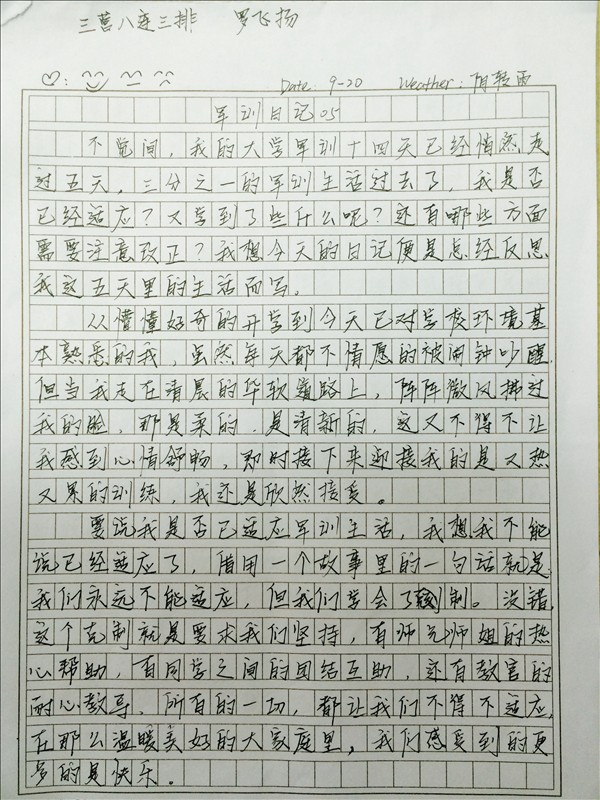 三营八连三排 罗飞扬
Date: 9-20 Weather: 阴转雨
军训日记05
不觉间，我的大学军训十四天已经悄然走
过五天，三分之一的军训生活过去了，我是否
已经适应？又学到了些什么呢？还有哪些方面
需要注意改正？我想今天的日记便是总经反思
我这五天里的生活而写。
从懵懂好奇的开学到今天已对学校环境基
本熟悉的我，虽然每天都不情愿的被闹钟吵醒，
但当我走在清晨的华软道路上，阵阵微风拂过
我的脸，那是柔的，是清新的，这又不得不让
我感到心情舒畅，即时接下来迎接我的是又热
又累的训练，我还是欣然接受。
要说我是否已适应军训生活，我想我不能
说已经适应了，借用一个故事里的一句话就是：
我们永远不能适应，但我们学会了克制。没错，
这个克制就是要求我们坚持，有师兄师姐的热
心帮助，有同学之间的团结互助，还有教官的
耐心教导，所有的一切，都让我们不得不适应，
在那么温暖美好的大家庭里，我们感受到的更
多的是快乐。